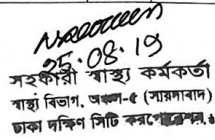 25.08.19
সহকারী স্বাস্থ্য কর্মকর্তা
স্বাস্থ্য বিভাগ, অঞ্চল-৫ (সায়দাবাদ)
ঢাকা দক্ষিণ সিটি কর্পোরেশন